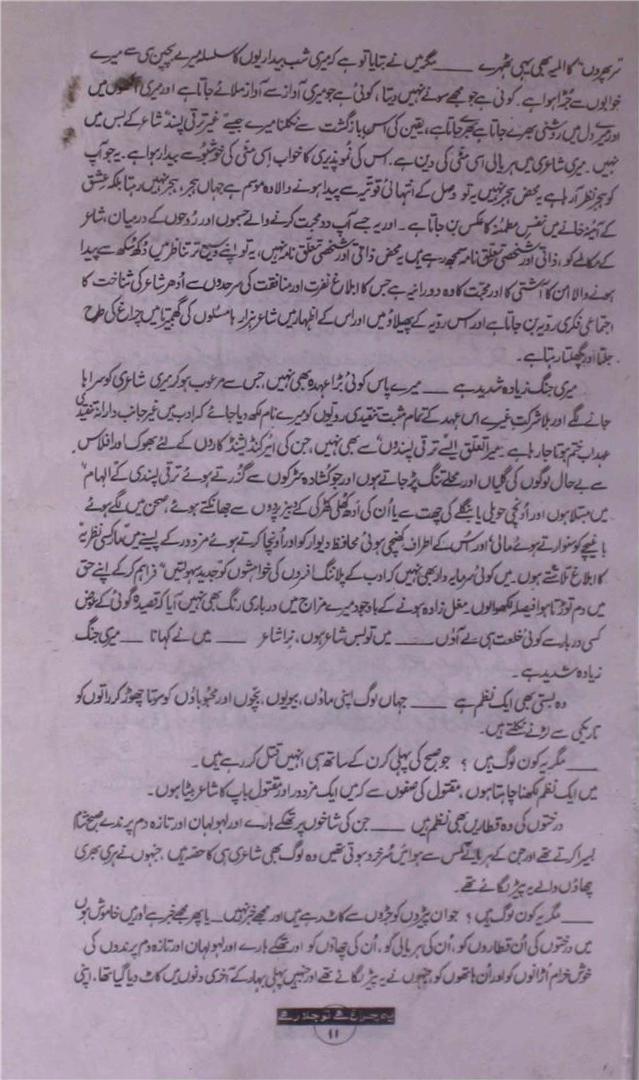 تر بھیدوں" کا المیہ بھی یہی ٹھہرے ____ مگر میں نے بتایا تو ہے کہ میری شب بیداریوں کا سلسلہ میرے بچپن ہی سے میرے
خوابوں سے جُڑا ہوا ہے۔ کوئی ہے جو مجھے سونے نہیں دیتا، کوئی ہے جو میری آواز سے آواز ملائے جاتا ہے اور میری آنکھوں میں
اور میرے دل میں روشنی بھرے جاتا ہے بھرے جاتا ہے، یقین کی اس بازگشت سے نکلنا میرے جیسے غیر ترقی پسند شاعر کے بس میں
نہیں۔ میری شاعری میں ہریالی اسی مٹی کی دین ہے۔ اس کی نمو پذیری کا خواب اِسی مٹی کی خوشبو سے بیدار ہوا ہے۔ یہ جو آپ
کو ہجر نظر آ رہا ہے یہ محض ہجر نہیں یہ تو وصل کے انتہائی قوتیر سے پیدا ہونے والا وہ موسم ہے جہاں ہجر، ہجر نہیں رہتا بلکہ عشق
کے آئینہ خانے میں نفسِ مطمئنہ کا عکس بن جاتا ہے۔ اور یہ جسے آپ دو محبت کرنے والے جسموں اور رُوحوں کے درمیان، شاعر
کے مکالمے کو، ذاتی اور شخصی تعلق نامہ سمجھ رہے ہیں یہ محض ذاتی اور شخصی تعلق نامہ نہیں، یہ تو اپنے وسیع تر تناظر میں دُکھ سُکھ سے پیدا
ہونے والا امن کا آشتی کا اور محبت کا وہ دورانیہ ہے جس کا ابلاغ نفرت اور منافقت کی سرحدوں سے اُدھر شاعر کی شناخت کا
اجتماعی فکری رویہ بن جاتا ہے اور اس رویہ کے پھیلاؤ میں اور اس کے اظہار میں شاعر ہزار ہا مسئلوں کی گھمبیرتا میں چراغ کی طرح
جلتا اور پگھلتا رہتا ہے۔
میری جنگ زیادہ شدید ہے ____ میرے پاس کوئی بڑا عہدہ بھی نہیں، جس سے مرعوب ہو کر میری شاعری کو سراہا
جانے لگے اور بلا شرکتِ غیرے اس عہد کے تمام مثبت تنقیدی رویوں کو میرے نام لکھ دیا جائے کہ ادب میں غیر جانب دارانہ تنقیدی
عہد اب ختم ہوتا جا رہا ہے۔ میرا تعلق ایسے ترقی پسندوں سے بھی نہیں، جن کی ایئر کنڈیشنڈ کاروں کے لئے بھوک اور افلاس
سے بے حال لوگوں کی گلیاں اور محلے تنگ پڑ جاتے ہوں اور جو کشادہ سڑکوں سے گزرتے ہوئے ترقی پسندی کے الہام
میں مبتلا ہوں اور اُونچی حویلی یا بنگلے کی چھت سے یا اُن کی اَدھ کُھلی کھڑکی کے دبیز پردوں سے جھانکتے ہوئے، صحن میں لگے ہوئے
باغیچے کو سنوارتے ہوئے مالی اور اُس کے اطراف کھنچی ہوئی محافظ دیوار کو اور اُونچا کرتے ہوئے مزدور کے پسینے میں مارکسی نظریہ
کا ابلاغ تلاشتے ہوں۔ میں کوئی سرمایہ دار بھی نہیں کہ ادب کے پلاننگ افسروں کی خواہشوں کو جدید سہولتیں فراہم کر کے اپنے حق
میں دم توڑتا ہوا فیصلہ لکھوا لوں۔ مغل زادہ ہونے کے باوجود میرے مزاج میں درباری رنگ بھی نہیں آیا کہ قصیدہ گوئی کے عوض
کسی دربار سے کوئی خلعت ہی لے آؤں ____ میں تو بس شاعر ہوں، نِرا شاعر ____ میں نے کہا نا ____ میری جنگ
زیادہ شدید ہے۔
وہ بستی بھی ایک نظم ہے ____ جہاں لوگ اپنی ماؤں، بیویوں، بچوں اور محبوباؤں کو سوتا چھوڑ کر راتوں کو
تاریکی سے لڑنے نکلتے ہیں۔
____ مگر یہ کون لوگ ہیں؟ جو صبح کی پہلی کرن کے ساتھ ہی انہیں قتل کر رہے ہیں۔
میں ایک نظم لکھنا چاہتا ہوں، مقتول کی صفوں سے کہ میں ایک مزدور اور مقتول باپ کا شاعر بیٹا ہوں۔
درختوں کی وہ قطاریں بھی نظم ہیں ____ جن کی شاخوں پر تھکے ہارے اور لہولہان اور تازہ دم پرندے صبح شام
بسیرا کرتے تھے اور جن کے ہریالے لمس سے ہوائیں سُرخرو ہوتی تھیں وہ لوگ بھی شاعری ہی کا حصہ ہیں، جنہوں نے ہری بھری
چھاؤں والے یہ پیڑ لگائے تھے۔
____ مگر یہ کون لوگ ہیں؟ جو ان پیڑوں کو جڑوں سے کاٹ رہے ہیں اور مجھے خبر نہیں ____ یا پھر مجھے خبر ہے اور میں خاموش ہوں
میں درختوں کی اُن قطاروں کو، اُن کی ہریالی کو، اُن کی چھاؤں کو اور تھکے ہارے اور لہولہان اور تازہ دم پرندوں کی
خوش خرام اُڑانوں کو اور اُن ہاتھوں کو، جنہوں نے یہ پیڑ لگائے تھے اور جنہیں پہلی بہار کے آخری دنوں میں کاٹ دیا گیا تھا، اپنی
یہ چراغ ہے تو جلا رہے
۱۱